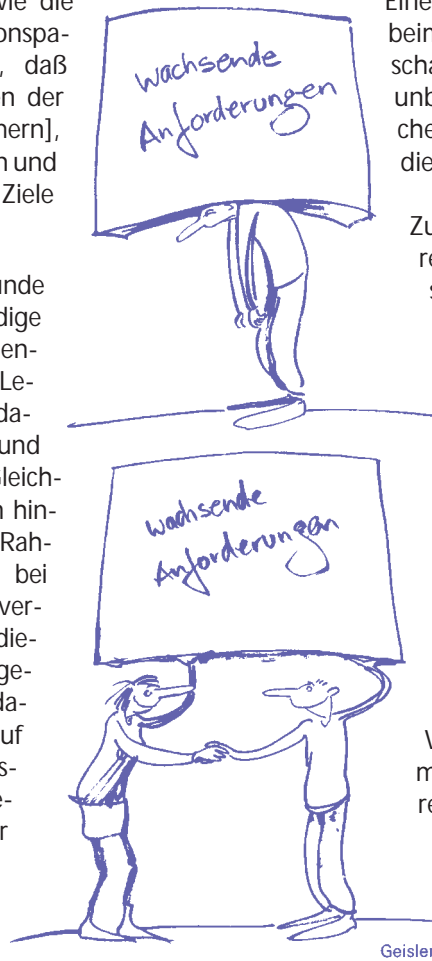 vie die
onspa-
, daß
en der
nern],
n und
Ziele
unde
dige
en-
Le-
da-
und
Gleich-
n hin-
Rah-
bei
ver-
die-
ge-
da-
uf
s-
e-
r
wachsende
Anforderungen
wachsende
Anforderungen
Eine
bein
scha
unb
che
die
Zu
re
s
V
m
re
Geisler